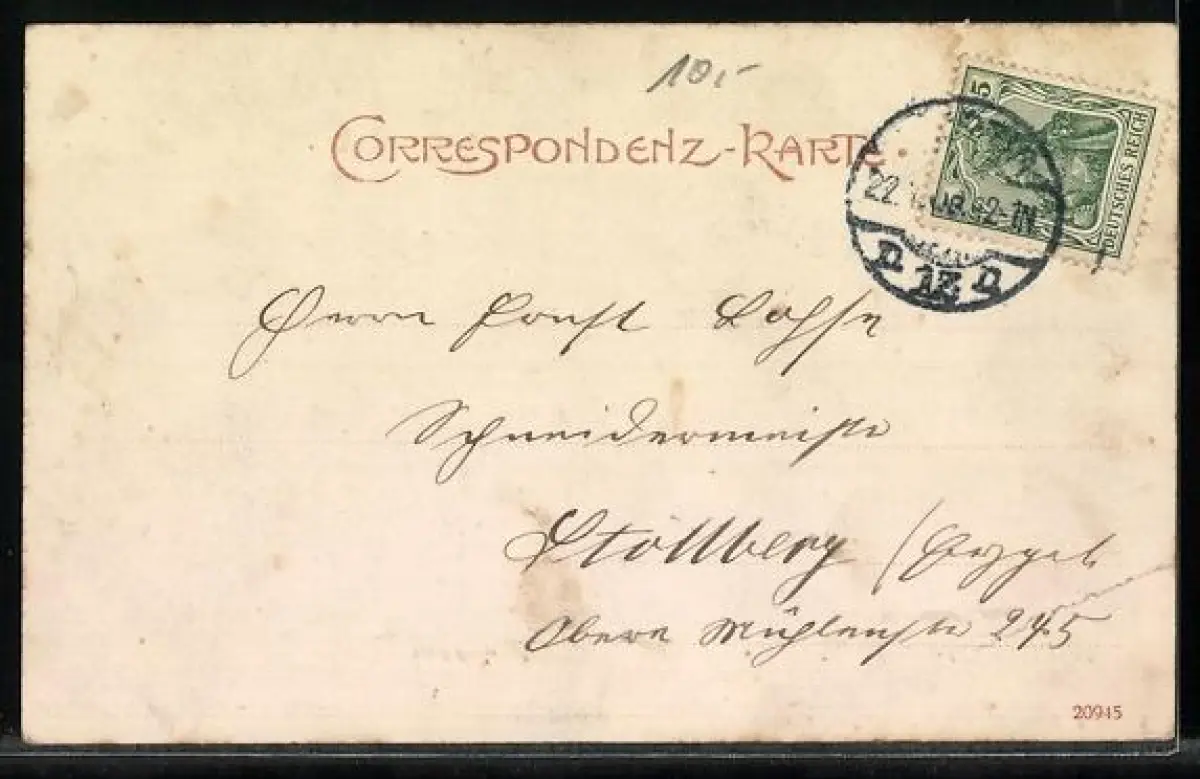 10,-
CORRESPONDENZ-KARTE.
5
DEUTSCHES REICH
22. 12-1N
n 12 n
Herrn Ernst Lohse
Schneidermeister
Stollberg /Erzgeb
Obere Mühlenstr 245
20945